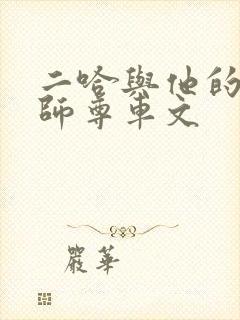 二哈與他的
師尊車文
嚴華